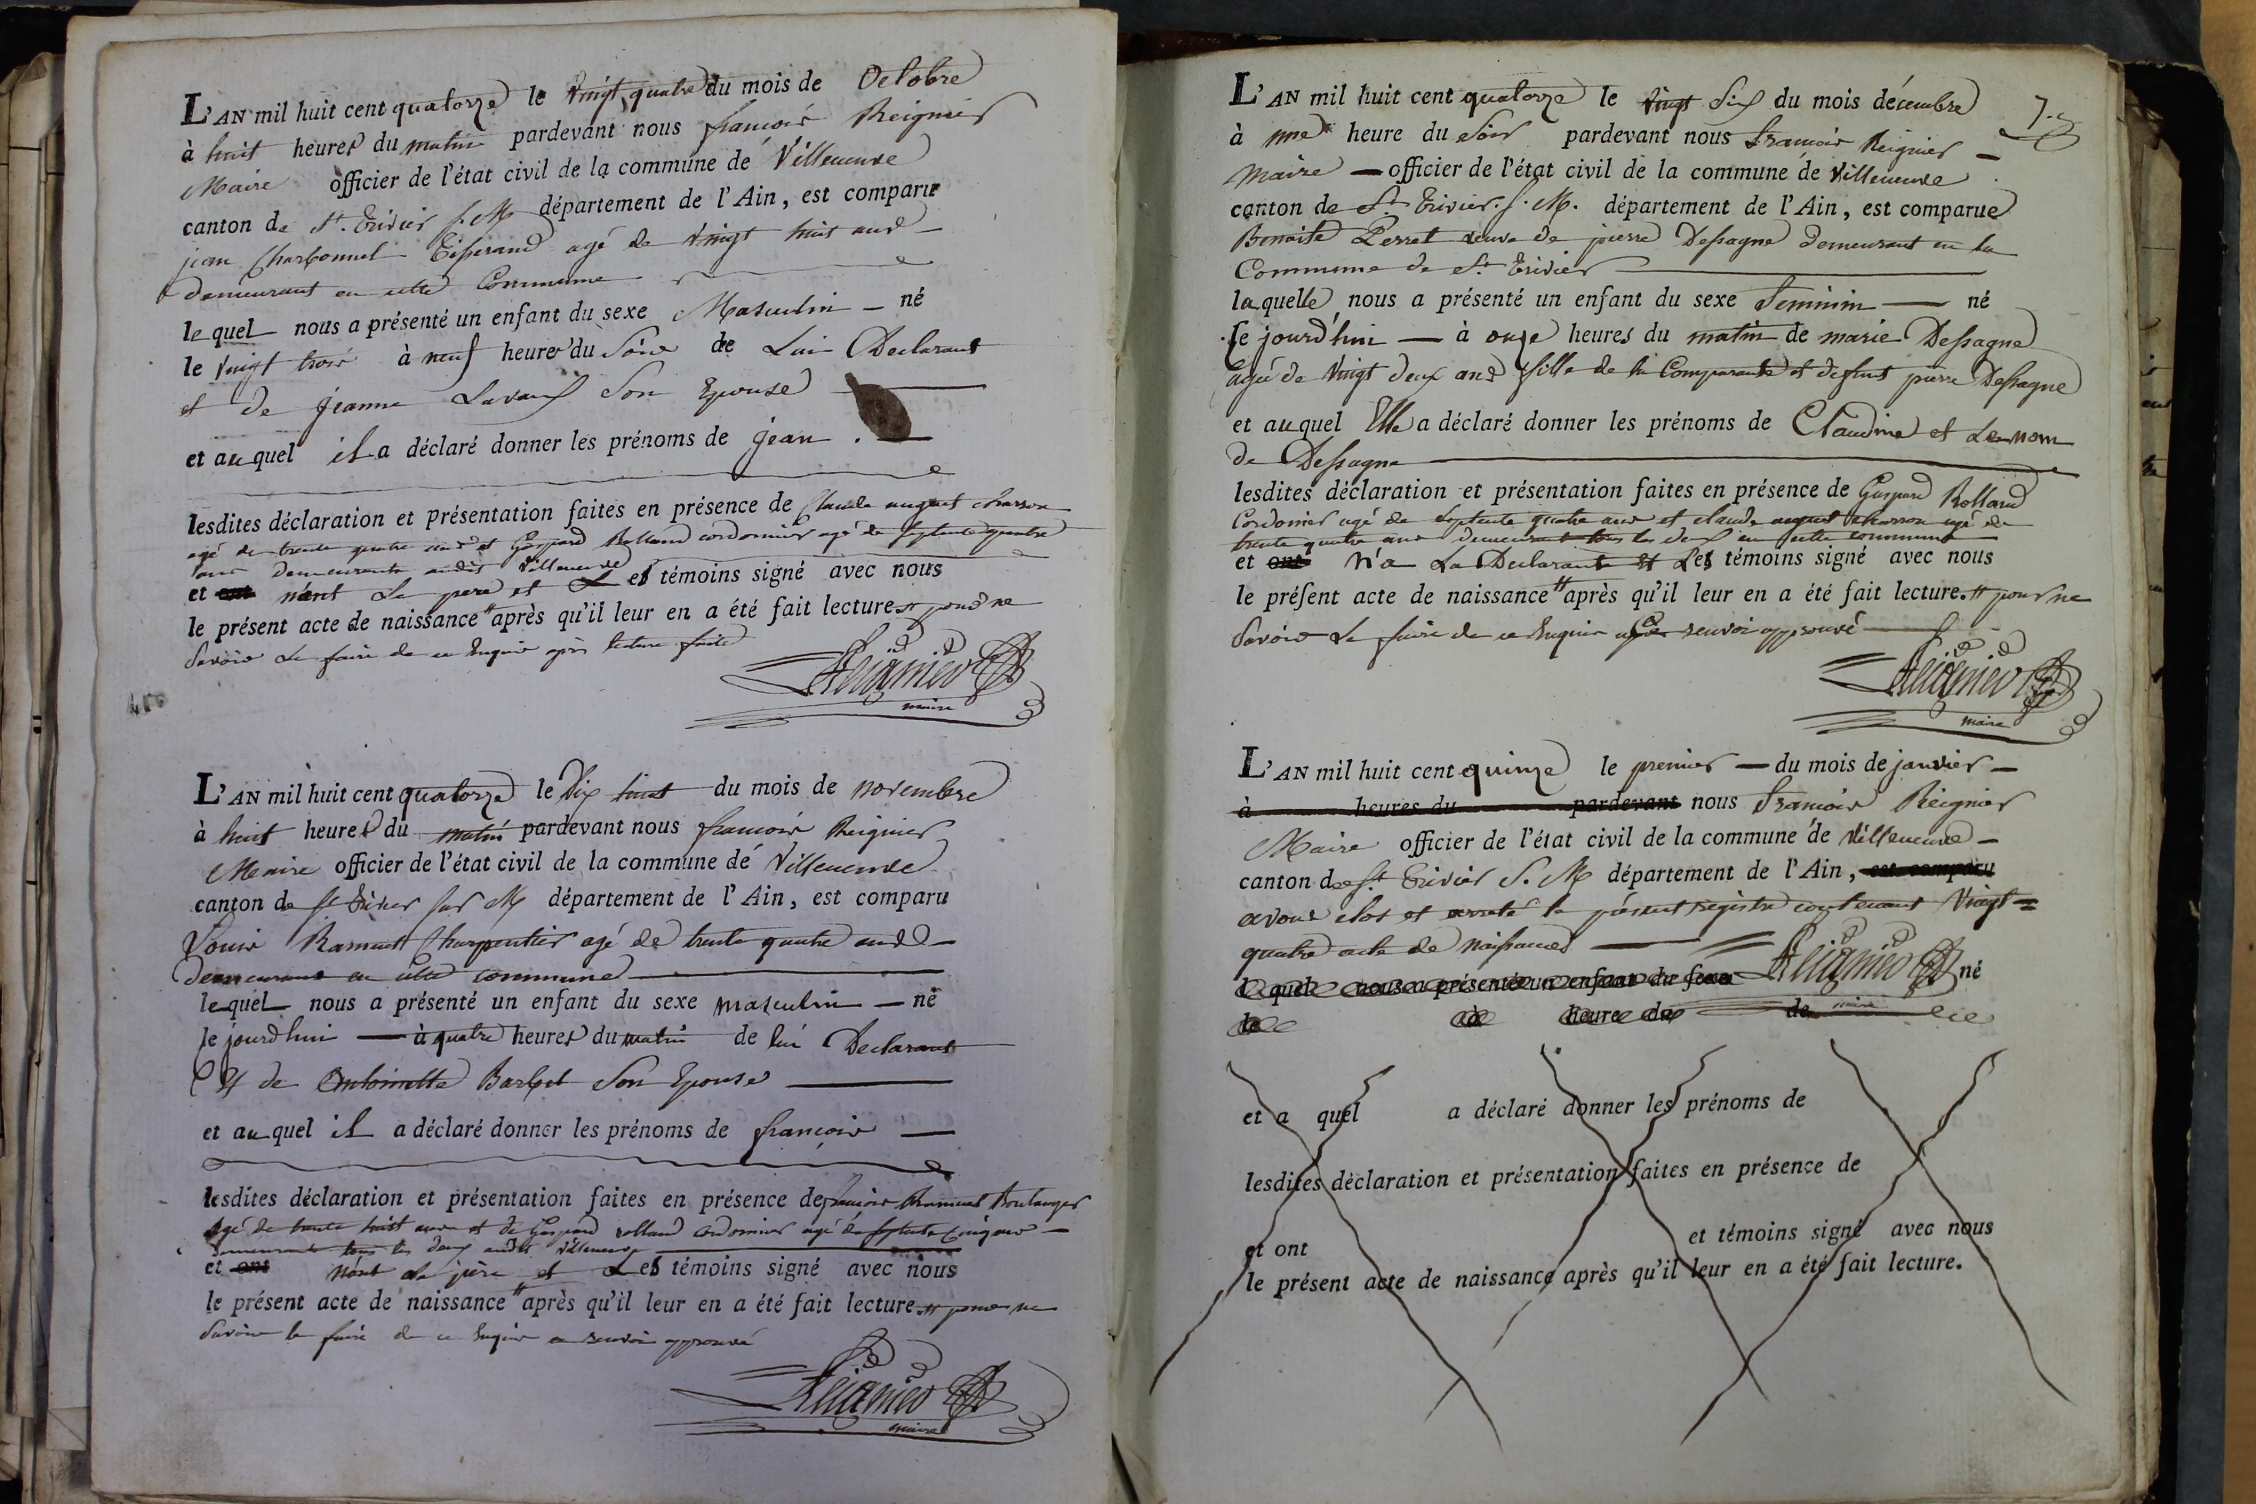 L'AN mil huit cent quatorze le vingt quatre du mois de Octobre
à huit heures du matin pardevant nous françois Reignier
Maire officier de l'état civil de la commune de Villeneuve
canton de St. Trivier s. M département de l'Ain, est comparu
jean Charbonnel Tisserand agé de vingt huit ans
demeurant en cette Commune
le quel nous a présenté un enfant du sexe Masculin né
le vingt trois à neuf heures du Soir de Lui Declarant
et de jeanne Lavaux Son Epouse
et au quel il a déclaré donner les prénoms de jean .
lesdites déclaration et présentation faites en présence de Claude auguet charron
agé de trente quatre ans et Gaspard Rolland cordonnier agé de septente quatre
ans demeurants audit Villeneuve
et ont n'ont Le pere et Les témoins signé avec nous
le présent acte de naissance après qu'il leur en a été fait lecture. pour ne
Savoir Le faire de ce Enquis après lecture faite
Reignier
maire
L'AN mil huit cent quatorze le Dix huit du mois de novembre
à huit heures du matin pardevant nous françois Reignier
Maire officier de l'état civil de la commune de Villeneuve
canton de St Trivier sur M département de l'Ain, est comparu
Louis Ramuet Charpentier agé de trente quatre ans
demeurant en cette commune
lequel nous a présenté un enfant du sexe masculin né
ce jourd'hui à quatre heures du matin de lui Declarant
Et de Antoinette Barbet Son Epouse
et au quel il a déclaré donner les prénoms de françois
lesdites déclaration et présentation faites en présence de françois Ramuet Boulanger
agé de trente huit ans et de Gaspard rolland cordonnier agé de septente cinq ans
demeurant tous les deux audit Villeneuve
et ont n'ont Le père et Les témoins signé avec nous
le présent acte de naissance après qu'il leur en a été fait lecture. pour ne
Savoir le faire de ce Enquis renvoi approuvé
Reignier
maire
7.
L'AN mil huit cent quatorze le vingt Six du mois décembre
à une heure du Soir pardevant nous françois Reignier
maire officier de l'état civil de la commune de Villeneuve
canton de St Trivier. s. M. département de l'Ain, est comparue
Benoite Perret veuve de pierre Dessagne demeurant en la
Commune de St Trivier
laquelle nous a présenté un enfant du sexe feminin né
ce jourd'hui à onze heures du matin de marie Dessagne
agée de Vingt deux ans fille de la Comparante et defunt pierre Dessagne
et auquel Elle a déclaré donner les prénoms de Claudine et Le nom
de Dessagne
lesdites déclaration et présentation faites en présence de Gaspard Rolland
Cordonier agé de septente quatre ans et claude auguet charron agé de
trente quatre ans demeurant tous les deux en cette commune
et ont n'a La Declarante Et Les témoins signé avec nous
le présent acte de naissance après qu'il leur en a été fait lecture. pour ne
Savoir Le faire de ce Enquis renvoi approuvé
Reignier
maire
L'AN mil huit cent quinze le premier du mois de janvier
à heures du pardevant nous françois Reignier
Maire officier de l'état civil de la commune de Villeneuve
canton de St. Trivier S. M département de l'Ain, est comparu
avons clos et arreté le présent registre contenant Vingt
quatre acte de naissances
Reignier
l quel nous a présenté un enfant du sexe né
le à heure du de
maire
et a quel a déclaré donner les prénoms de
lesdites déclaration et présentation faites en présence de
et ont et témoins signé avec nous
le présent acte de naissance après qu'il leur en a été fait lecture.